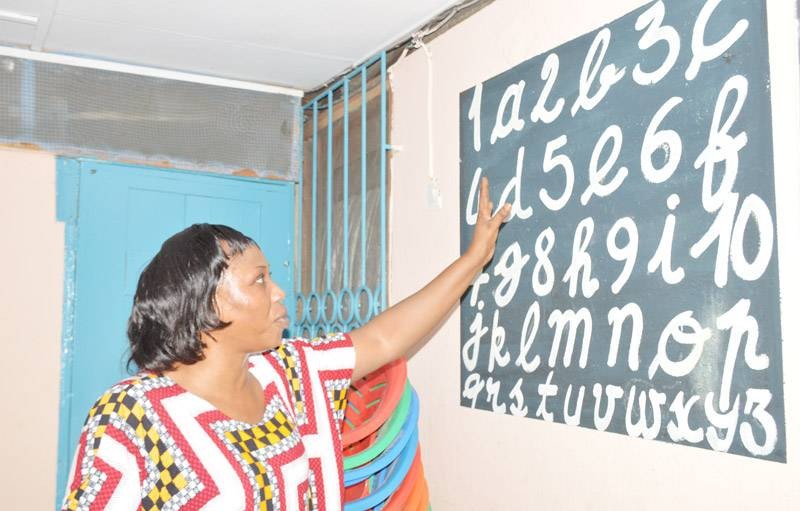 1 a 2 b 3 c
4 d 5 e 6 f
7 g 8 h 9 i 10
j k l m n o p
q r s t u v w x y z